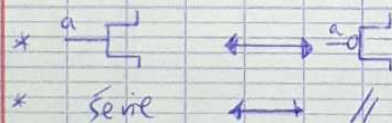 * a a
* série //